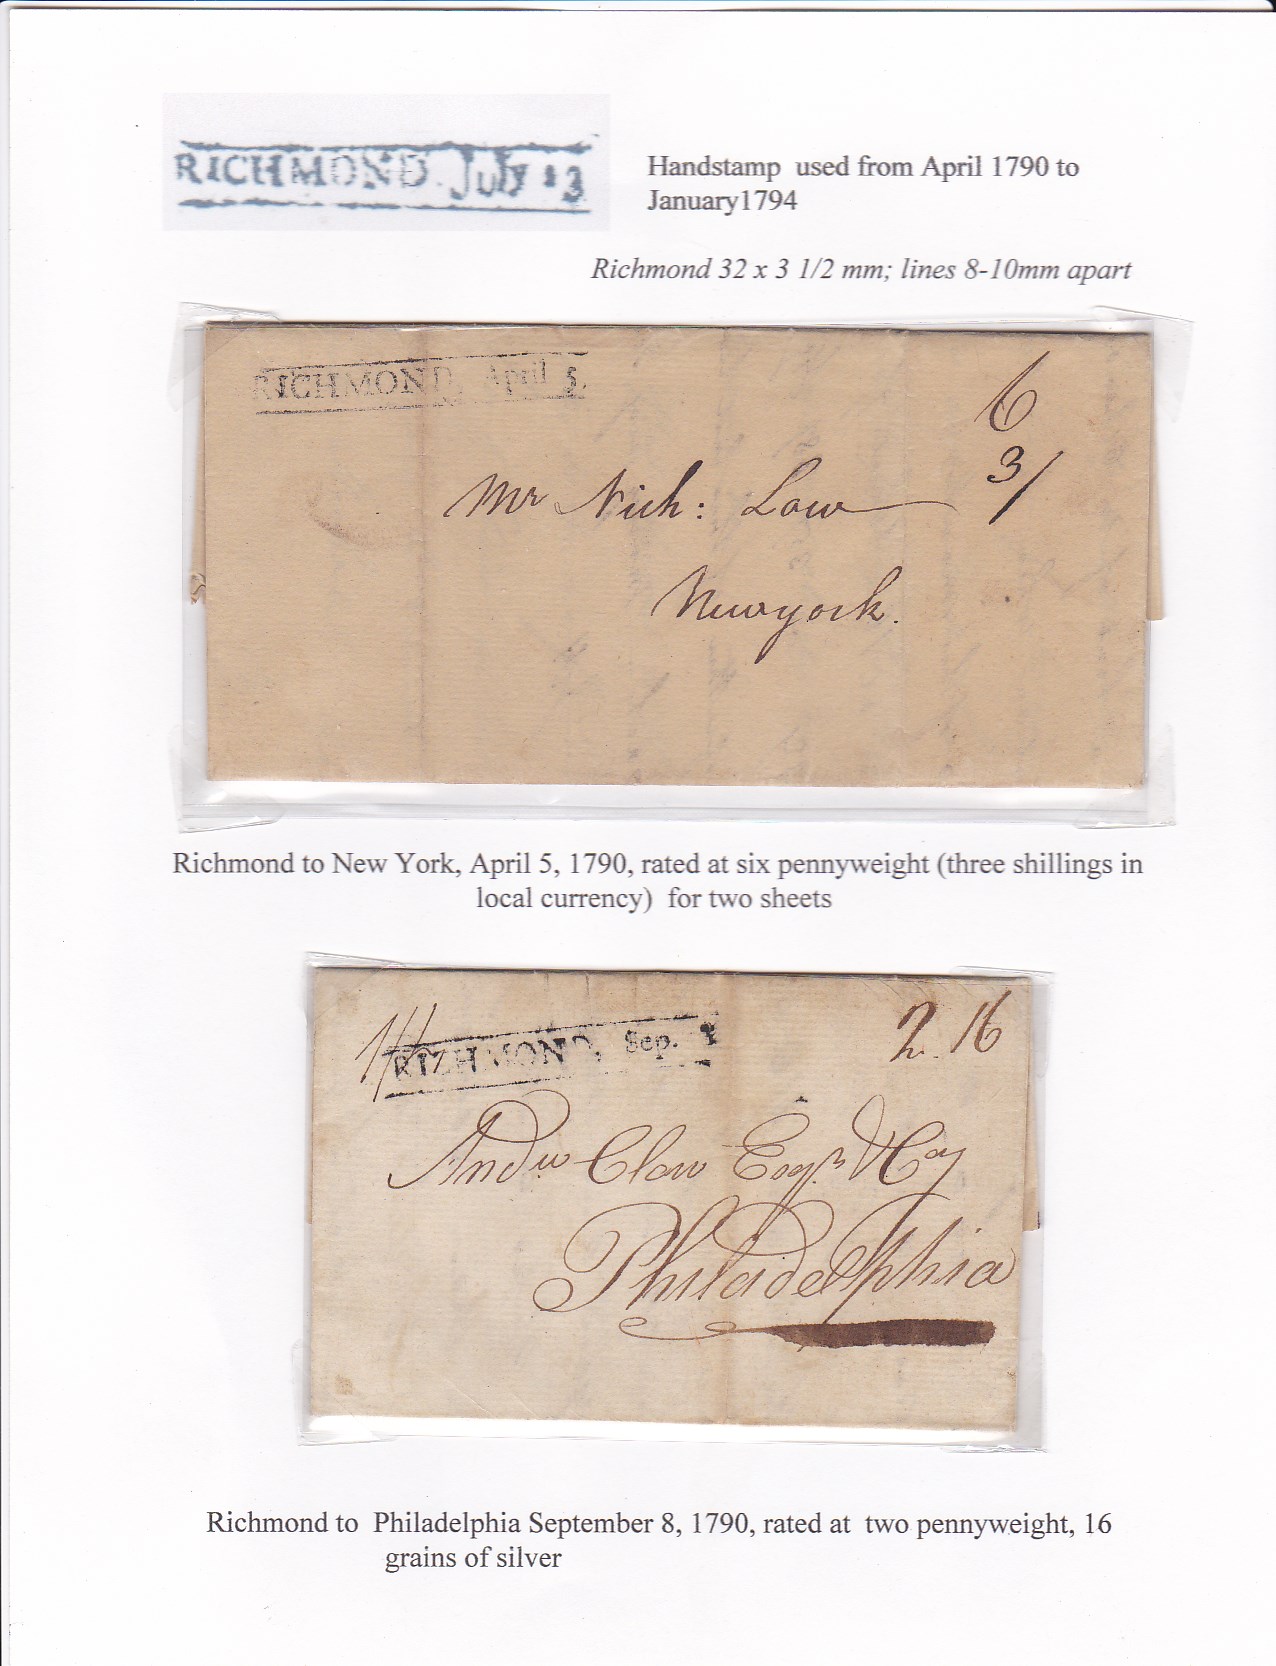 RICHMOND. July 13
Handstamp used from April 1790 to
January1794
Richmond 32 x 3 1/2 mm; lines 8-10mm apart
RICHMOND, April 5.
6
3/
Mr Nich: Low
Newyork.
Richmond to New York, April 5, 1790, rated at six pennyweight (three shillings in
local currency) for two sheets
RICHMOND, Sep.
2. 16
Andw Clow Esqr. & Coy
Philadelphia
Richmond to Philadelphia September 8, 1790, rated at two pennyweight, 16
grains of silver